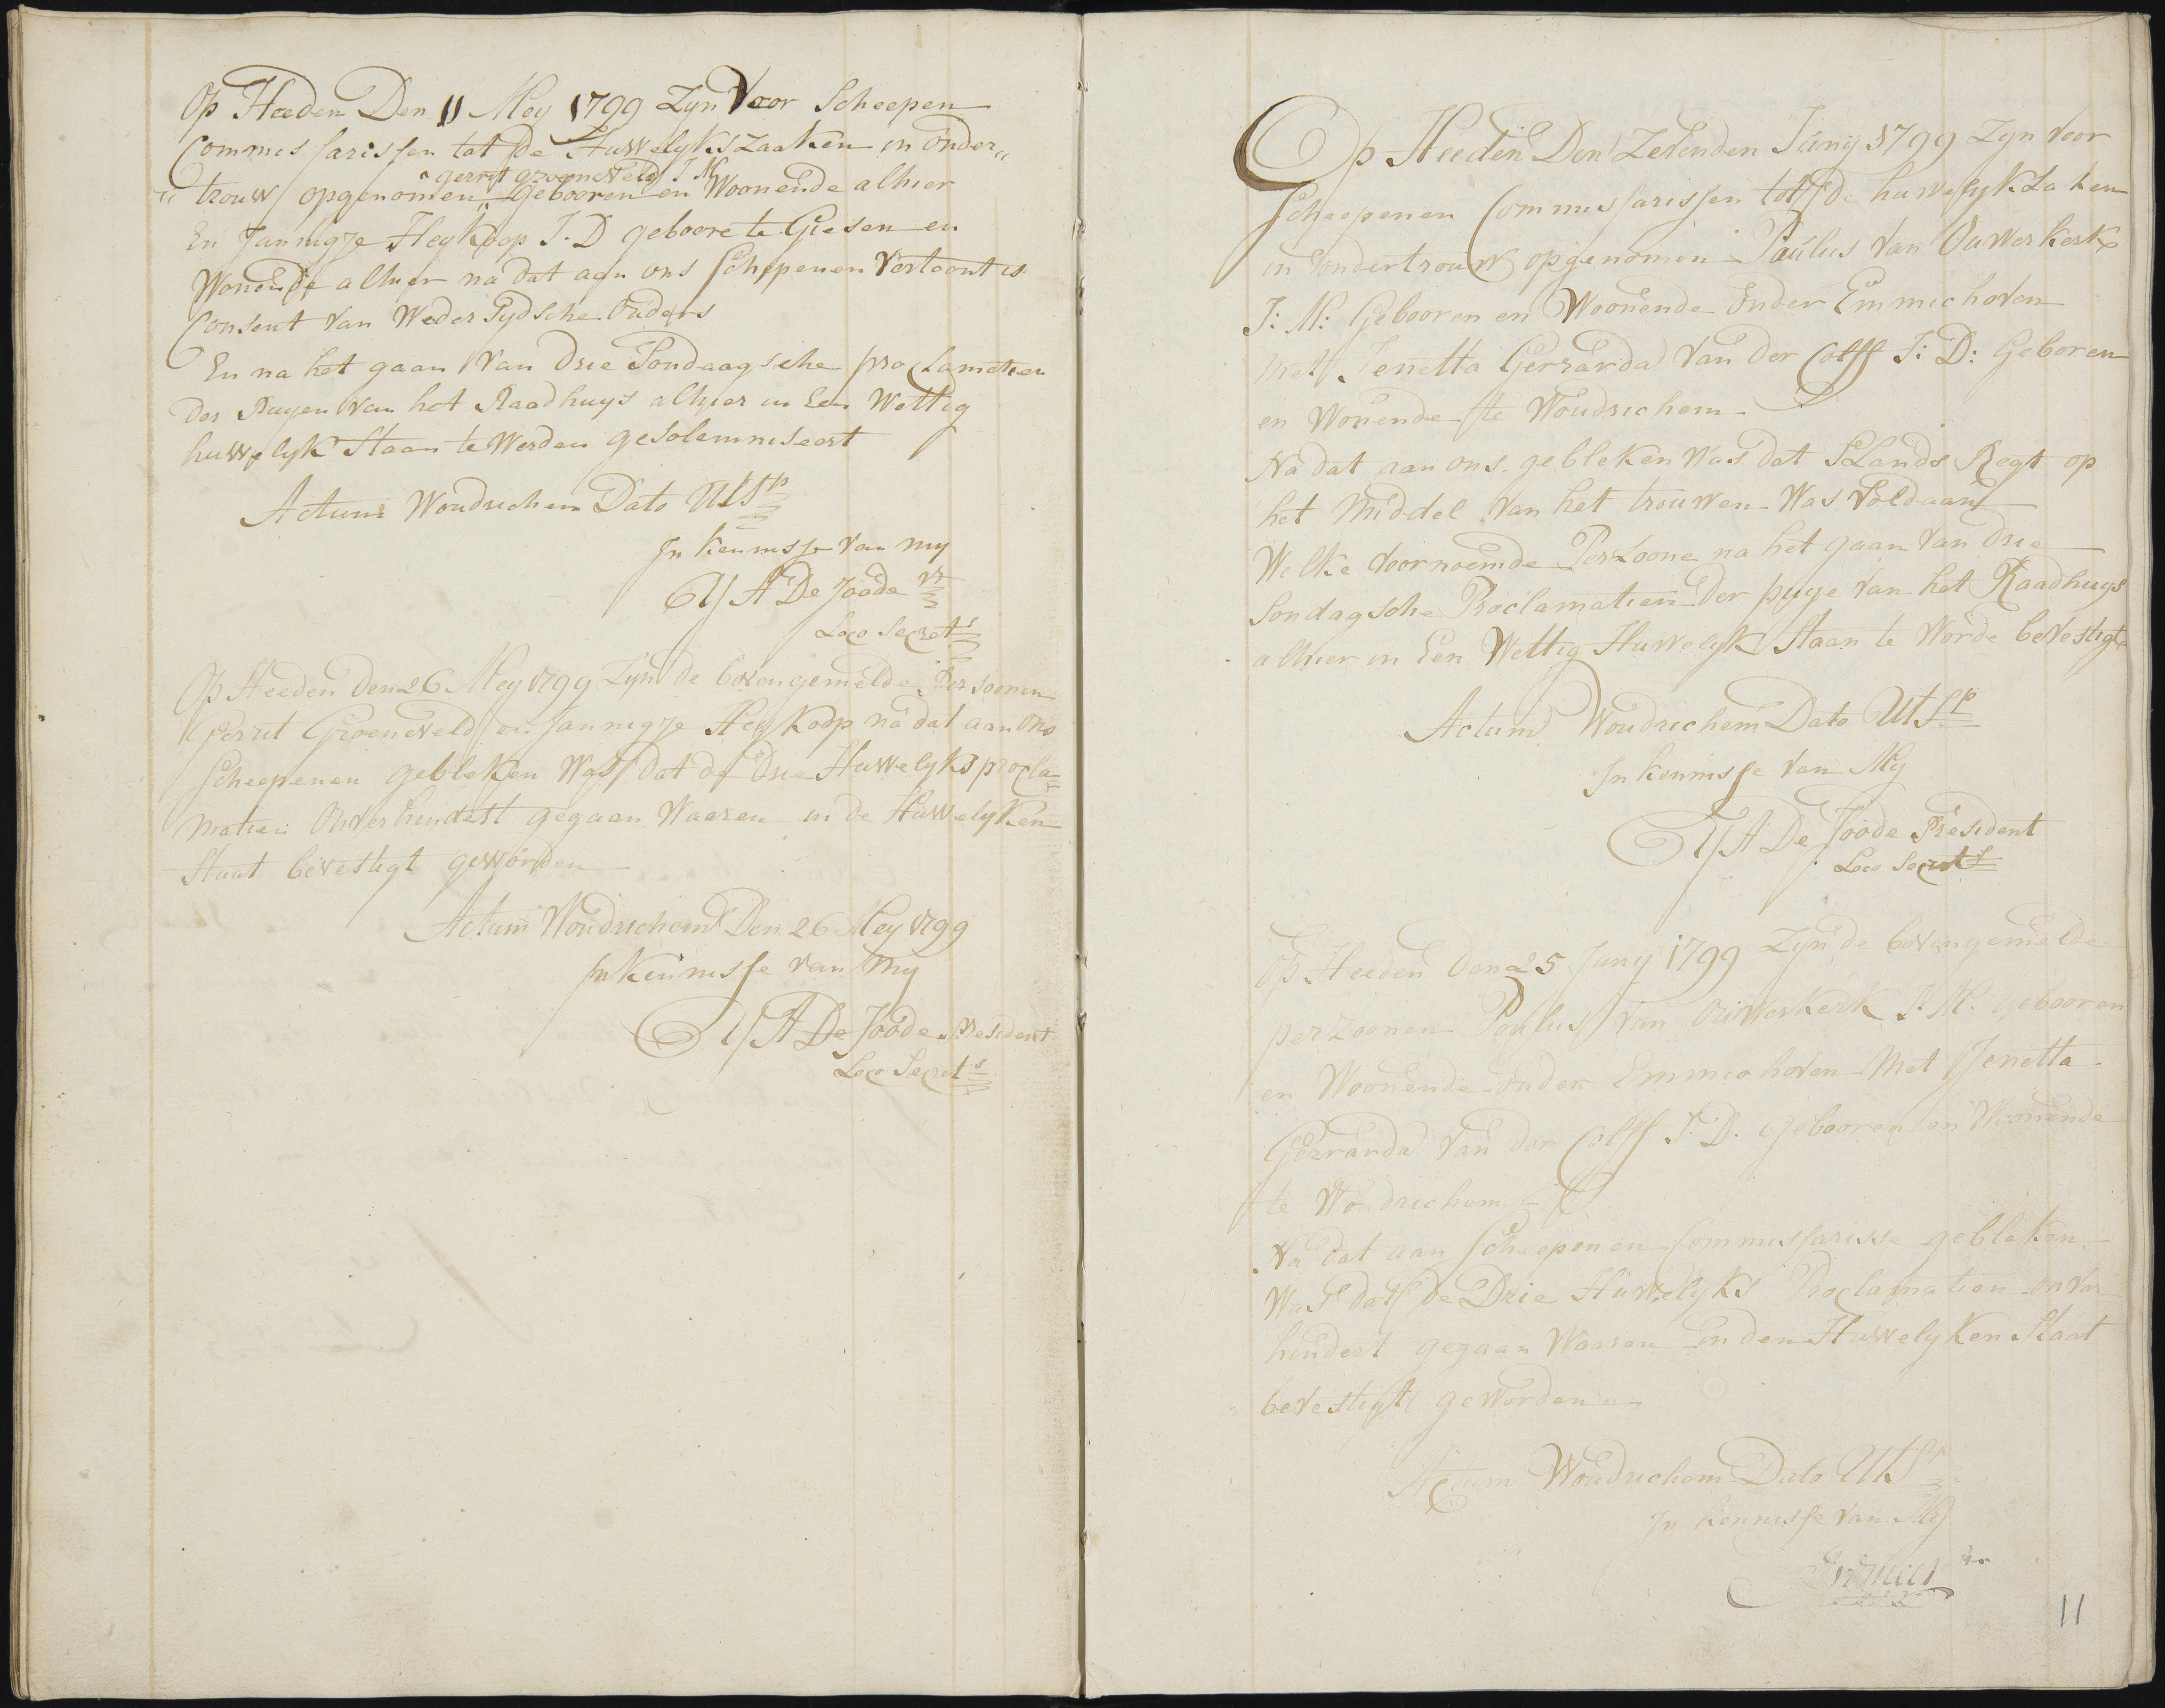 Op Heeden Den 11 Mey 1799 Zyn Voor Scheepen
Commissarissen tot de Huwelyks zaaken in onder„
„trouw opgenomen „ gerrit groeneveld J M Gebooren en Woonende alhier
En Jannigje Heykoop J. D geboore te Giesen en
Wonende alhier na dat aan ons Schepenen Vertoont is
Consent van Weder Zydsche Ouders
En na het gaan Van drie Sondaagsche proclamatien
der Puyen van het Raadhuys alhier in Een Wettig
huwelyk Staan te Werden gesolemniseert
Actum Woudrichem Dato Ut Sp
In kennisse Van my
A De Joode Pr
Loco Secrets
Op Heeden Den 26 Mey 1799 Zyn de bovengemelde Persoonen
Gerrit Groeneveld en Jannigje Heykoop na dat aan Ons
Scheepenen gebleken Was dat de drie Huwelyks procla=
matien Onverhindert gegaan Waaren in de Huwelyken
Staat bevestigt geworden
Actum Woudrichem Den 26 Mey 1799
In Kennisse van My
A De Joode President
Loco Secrets
Op Heeden Den Zevenden Juny 1799 Zyn voor
Scheepenen Commissarissen tot de huwelyk Zaken
in ondertrouw opgenomen Paulus Van Ouwerkerk
J: M: Gebooren en Woonende Onder Emmichoven
met Jenetta Gerrarda Van der Colff J: D: Geboren
en Wonende te Woudrichem
Na dat aan ons gebleken Was dat SLands Regt op
het Middel Van het trouwen Was Voldaan
Welke Voornoemde Perzoone na het gaan Van drie
Sondagsche Proclamatien der puye Van het Raadhuys
alhier in Een Wettig Huwelyk Staan te Worde bevestigt
Actum Woudrichem Dato Ut Sp
In kennisse Van My
A De Joode President
Loco Secrets
Op Heeden Den 25 Juny 1799 Zyn de bovengemelde
perzoonen Paulus Van Ouwerkerk J: M. gebooren
en Woonende onder Emmichoven Met Jenetta
Gerrarda Van der Colff J. D. Gebooren en Woonende
te Woudrichem
Na dat aan Scheepenen Commissarisse gebleken
Was dat de Drie Huwelyks Proclamatien onver
hindert gegaan Waaren in den Huwelyken Staat
bevestigt geworden
Actum Woudrichem Dato Ut Sp
In kennisse Van My
11